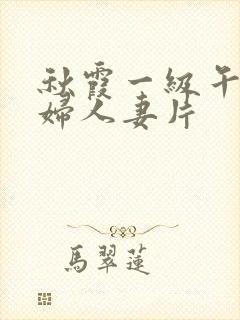 秋霞一級午
婦人妻片
馬翠蓮